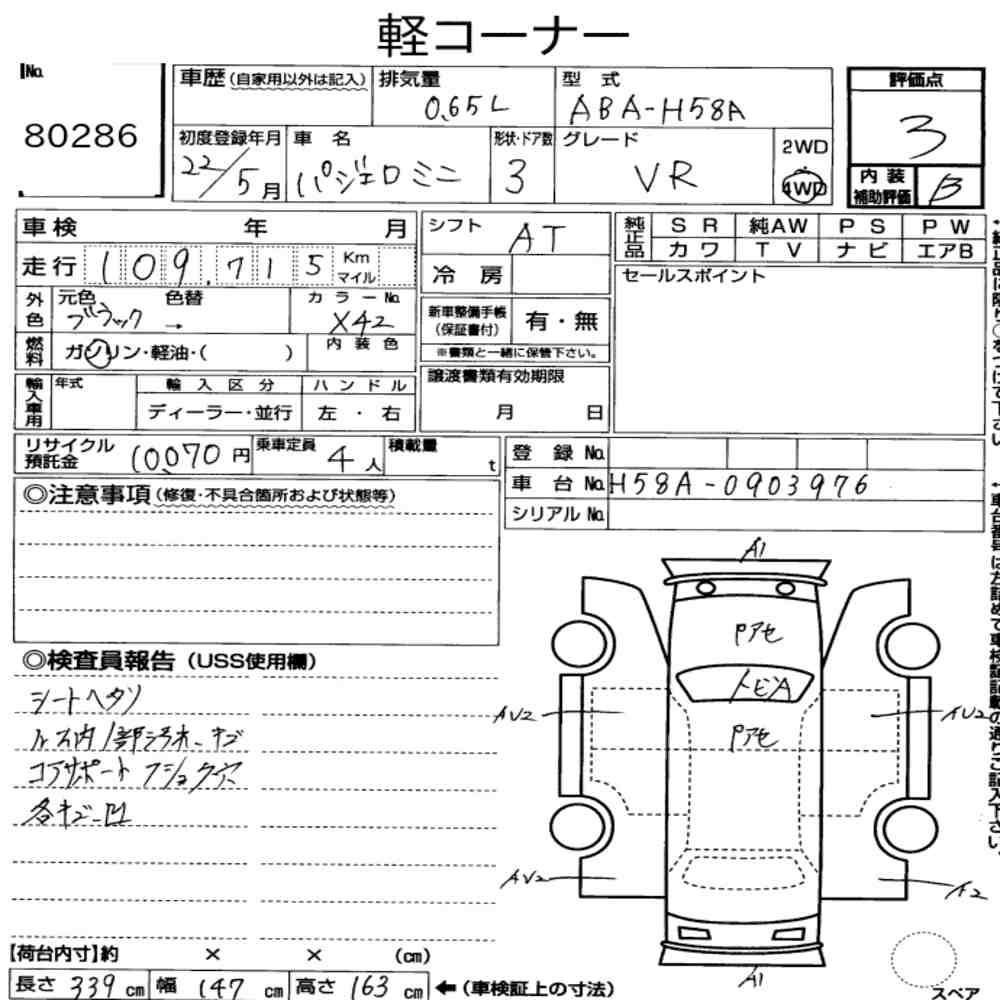 軽コーナー
No.
80286
車歴(自家用以外は記入) 排気量 0.65L 型式 ABA-H58A
評価点 3
初度登録年月 22/5月 車名 パジェロミニ 形状・ドア数 3 グレード VR 2WD 4WD
内装補助評価 B
車検 年 月
走行 109.715 Km マイル
外色 元色 ブラック → 色替 カラーNo. X42
燃料 ガソリン・軽油・( ) 内装色
輸入車用 年式 輸入区分 ハンドル
ディーラー・並行 左・右
シフト AT
冷房
新車整備手帳(保証書付) 有・無
※書類と一緒に保管下さい。
譲渡書類有効期限
月 日
純正品 SR 純AW PS PW
カワ TV ナビ エアB
セールスポイント
リサイクル預託金 10,070円 乗車定員 4人 積載量 t
登録No.
車台No. H58A-0903976
シリアルNo.
◎注意事項(修復・不具合箇所および状態等)
◎検査員報告(USS使用欄)
シートヘタリ
内1部汚れ キズ
コアサポート
各キズ 凹
A1
Pアセ
トビA
Pアセ
AU2
AU2
AU2
A2
A1
スペア
【荷台内寸】約 × × (cm)
長さ 339cm 幅 147cm 高さ 163cm ←(車検証上の寸法)
←純正品に限り○をつけて下さい
←車台番号は左詰めで車検証記載の通りご記入下さい。